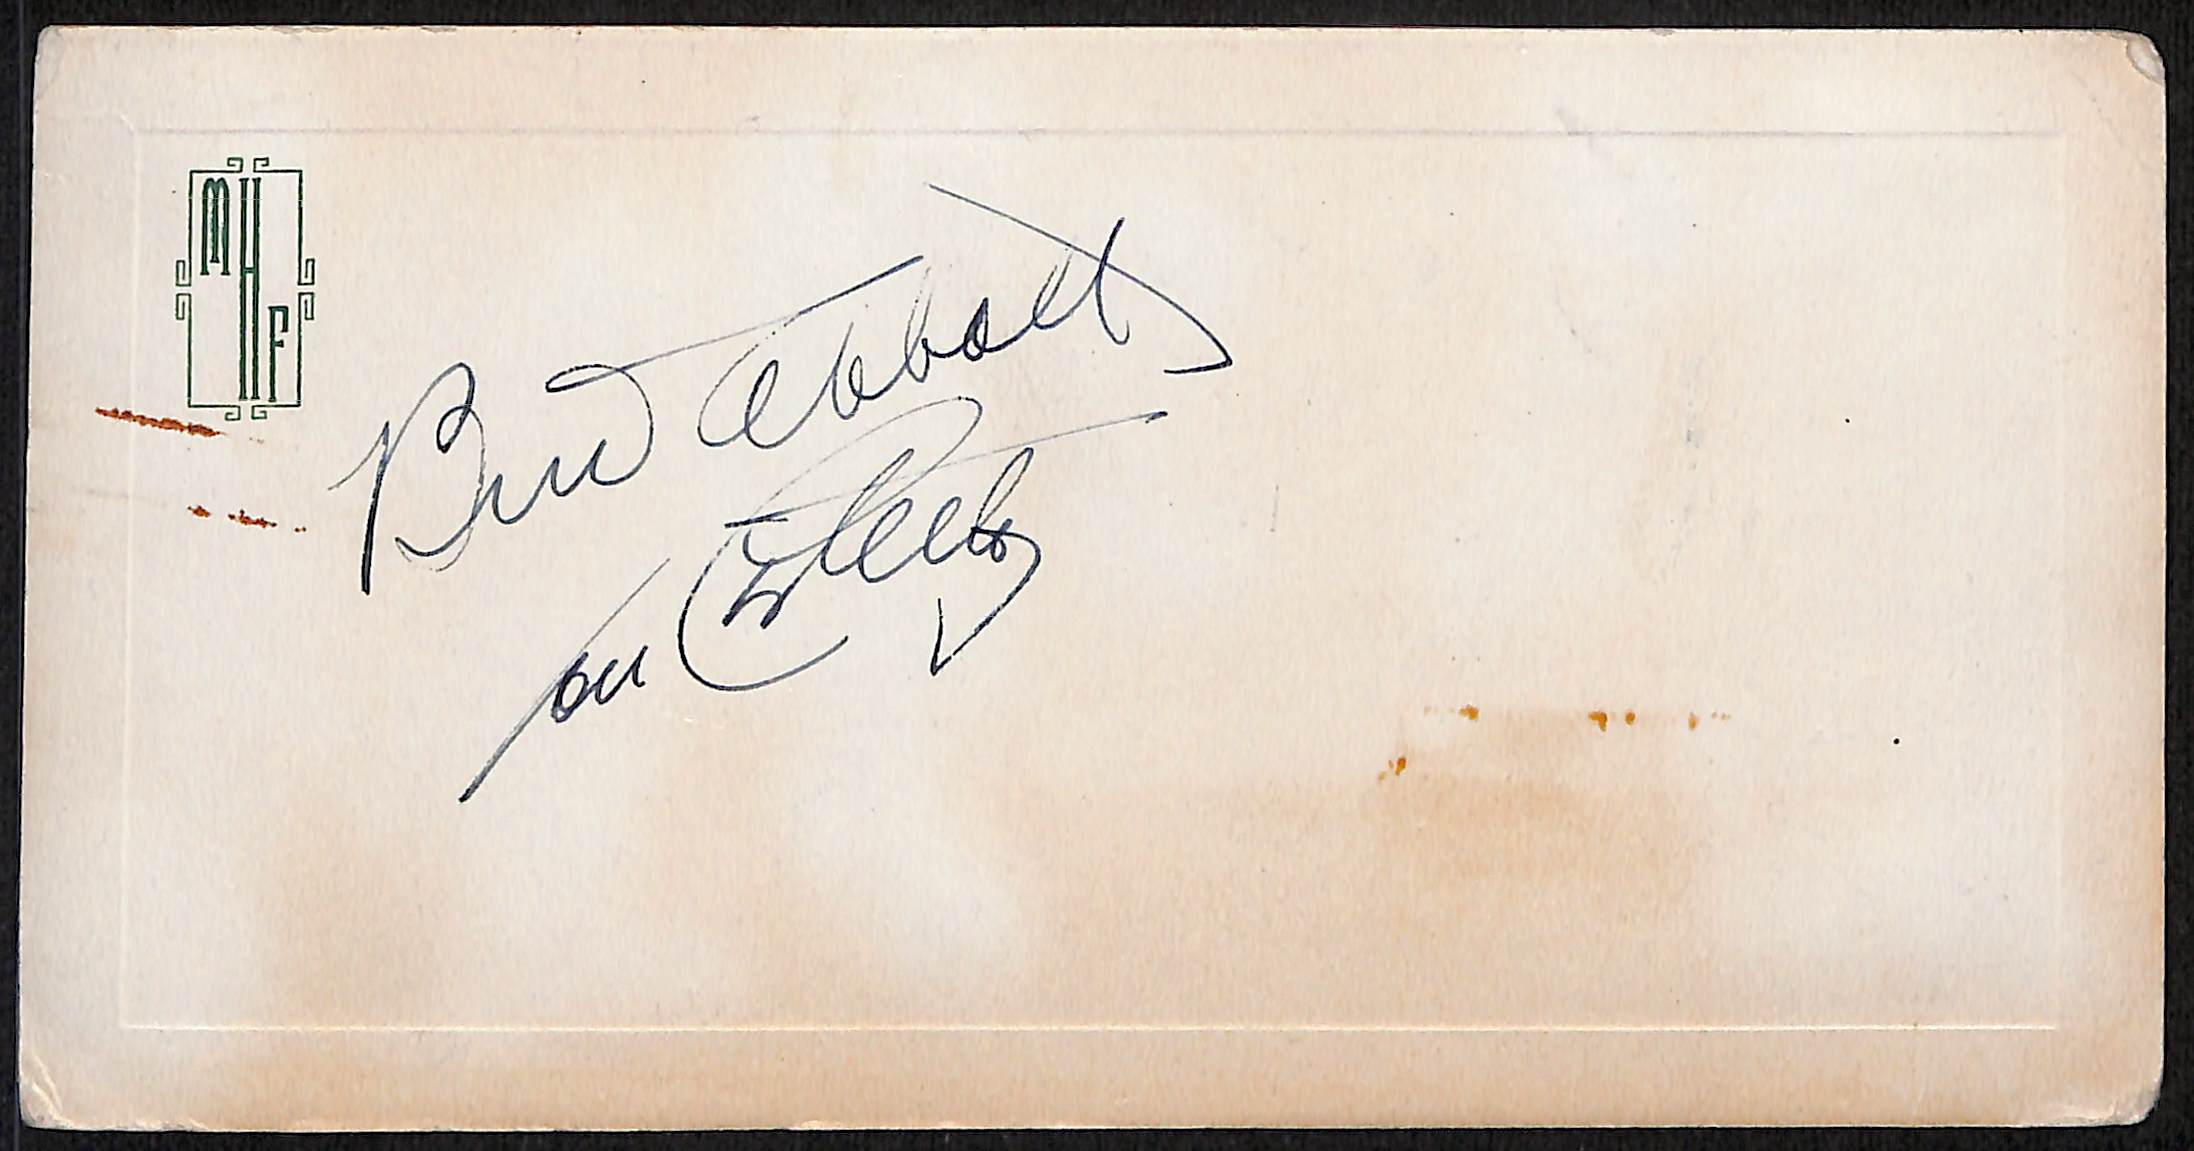 MHF
Bud Abbott
Lou Costello